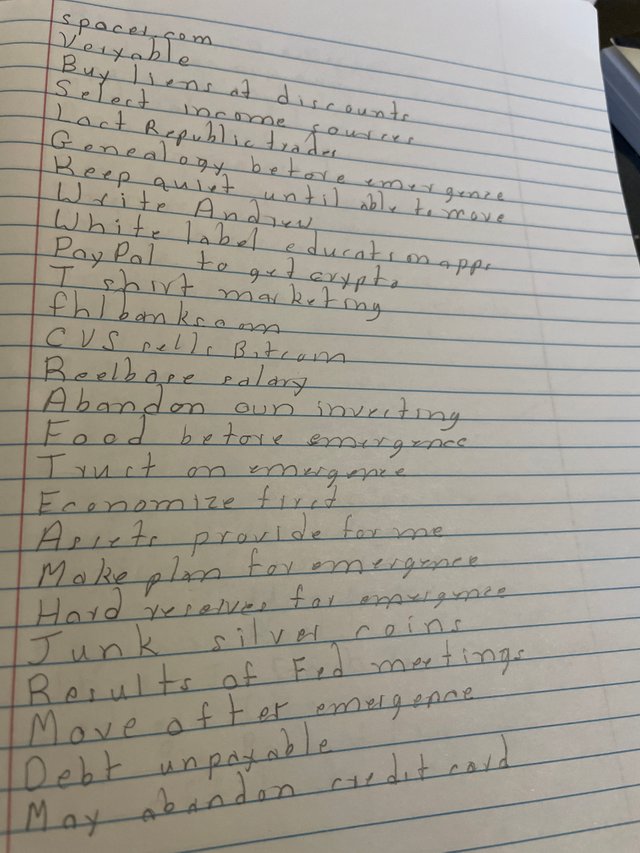 spacer.com
Veryable
Buy liens at discounts
Select income sources
Last Republic trades
Genealogy before emergence
Keep quiet until able to move
Write Andrew
White label education apps
PayPal to get crypto
T shirt marketing
fhlbanks.com
CVS sells Bitcoin
Reelbase salary
Abandon own investing
Food before emergence
Trust on emergence
Economize first
Assets provide for me
Make plan for emergence
Hard reserves for emergence
Junk silver coins
Results of Fed meetings
Move after emergence
Debt unpayable
May abandon credit card